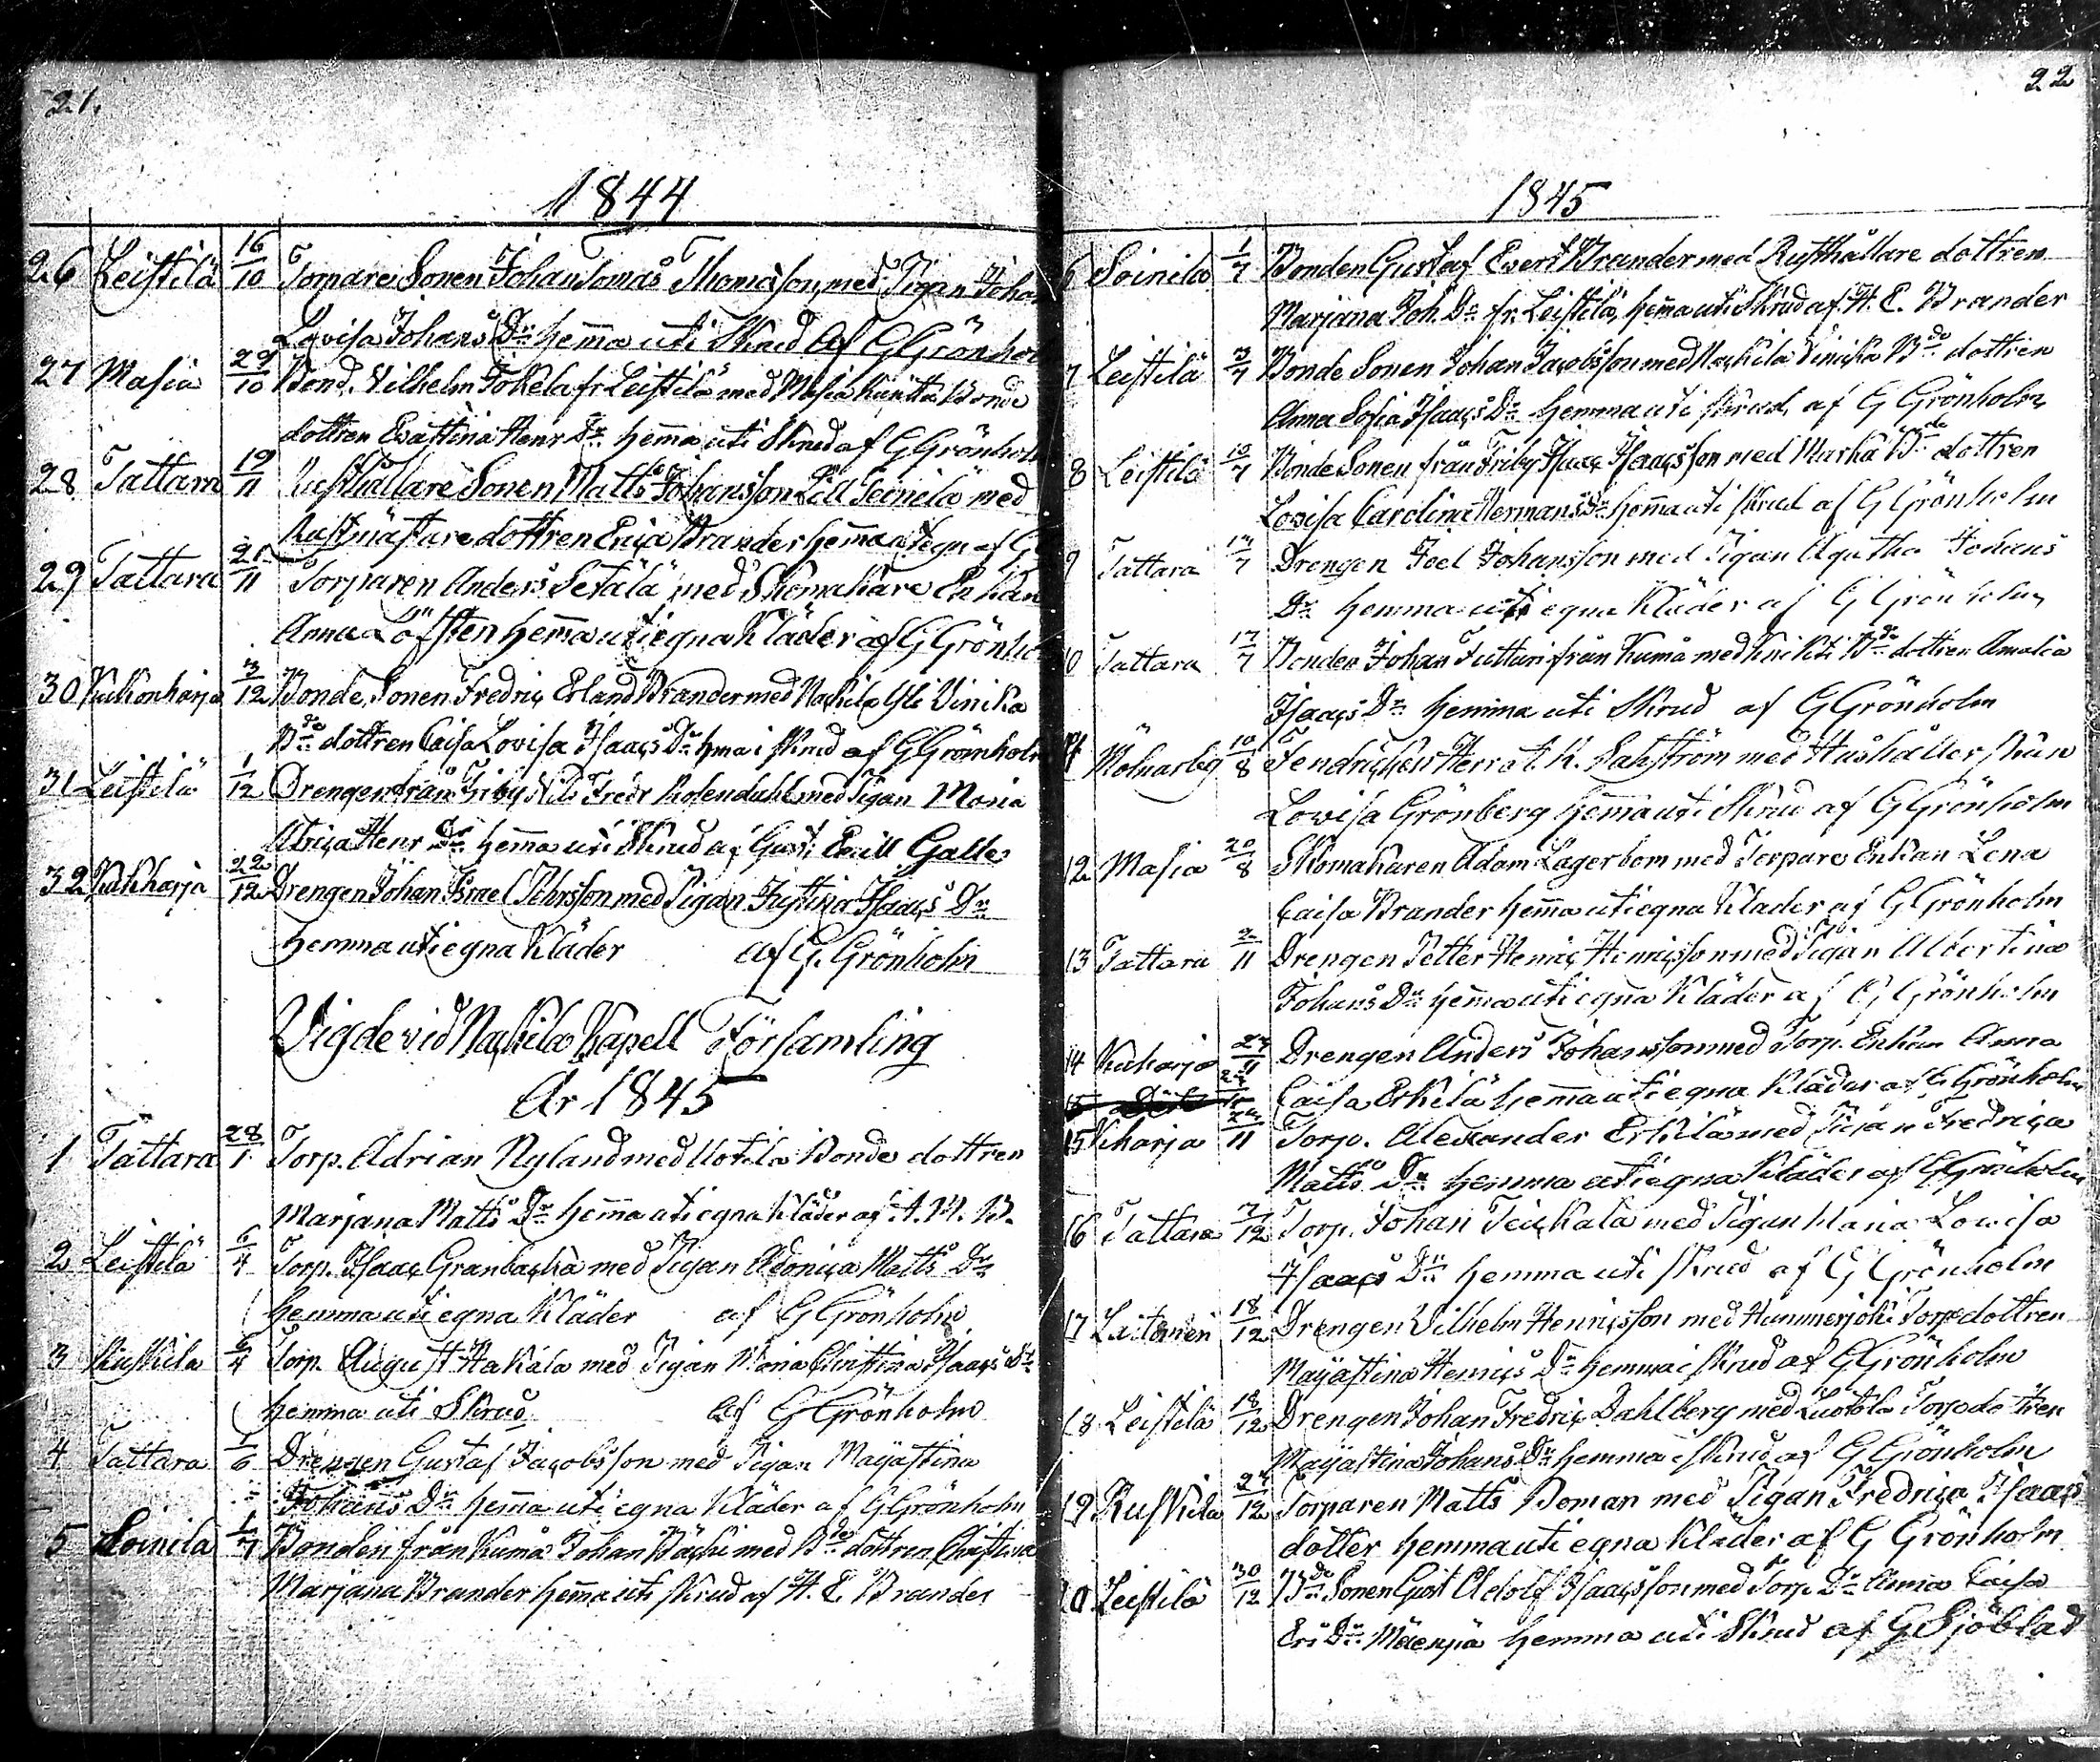 21.
1844
26 Leistilä 16/10 Torpare Sonen Johan Tomas Thomasson, med Pigan Johan
Lovisa Johans Dr hemma uti Skrud Af G Grönhol
27 Masia 29/10 Bond. Vilhelm Tokela fr. Leistilä med Masia Bonde
dottren Evastina Henr Dr hemma uti Skrud af G Grönholm
28 Tattara 19/11 Rusthållare Sonen Matts Johansson Lill Teinilä med
Rustmästare dottren Erica Brander hemma af G
29 Tattara 21/11 Torparen Anders Setälä med Skomakare Enkan
Anna Löfsten hemma uti egna Kläder af G Grönho
30 Kukonharja 3/12 Bonde Sonen Fredric Erland Brander med Nackila Yli Vinika
Bde dottren Caisa Lovisa Isaacs Dr hma i skrud af G Grönholm
31 Leistilä 1/12 Drengen från Friby Nils Fredr Rosendahl med Pigan Maria
Ulrica Henr Dr hemma uti Skrud af Gust. Emill Galle
32 Kukharja 22/12 Drengen Johan Israel Johrsson med Pigan Justina Isaacs Dr
hemma uti egna Kläder af G. Grönholm
Vigde vid Nackila Kapell Församling
År 1845
1 Tattara 28/1 Torp. Adrian Nyland med Uotila Bonde dottren
Marjana Matts Dr hemma uti egna Kläder af A. M. W.
2 Leistilä 6/4 Torp. Isaac Granbacka med Pigan Adonica Matts Dr
hemma uti egna Kläder af G Grönholm
3 Ruskila 6/4 Torp August Hakala med Pigan Maria Christina Isaacs Dr
hemma uti Skrud Af G Grönholm
4 Tattara 1/6 Drengen Gustaf Jacobsson med Pigan Majastina
Johans Dr hemma uti egna Kläder af G Grönholm
5 Soinila 1/7 Bonden från Kumå Johan Bäcki med Bde dottren Christina
Marjana Brander hemma uti skrud af H. E. Brander
22
1845
6 Soinila 1/7 Bonden Gustaf Evert Brander med Rusthållare dottren
Marjana Joh. Dr fr. Leistilä, hemma uti Skrud af H. E. Brander
7 Leistilä 3/7 Bonde Sonen Johan Jacobsson med Nackila Vinika Bde dottren
Anna Sofia Isaacs Dr hemma uti skrud, af G Grönholm
8 Leistilä 10/7 Bonde Sonen från Friby Isaac Isaacsson med Bde dottren
Lovisa Carolina Hermans Dr hemma uti skrud af G Grönholm
9 Tattara 13/7 Drengen Joel Johansson med Pigan Agatha Johans
Dr hemma uti egna Kläder af G Grönholm
10 Tattara 17/7 Bonden Johan Juttari från Kumå med Bde dottren Amalia
Isaacs Dr hemma uti Skrud af G Grönholm
11 10/8 Fendricken Herr A. K. Sahström med Hushåller skan
Lovisa Grönberg hemma uti Skrud af G Grönholm
12 Masia 20/8 Skomakaren Adam Lagerbom med Torpare Enkan Lena
Caisa Brander hemma uti egna Kläder af G Grönholm
13 Tattara 2/11 Drengen Petter Henric Henricsson med Pigan Albertina
Johans Dr hemma uti egna Kläder af G Grönholm
14 Kukarja 27/11 Drengen Anders Johansson med Torp. Enkan Anna
Caisa Erkilä hemma uti egna Kläder af G Grönholm
15 Kharja 11 Torp. Alexander Erkilä med Pigan Fredrica
Matts Dr hemma uti egna Kläder af G Grönholm
16 Tattara 7/12 Torp. Johan Teickala med Pigan Maria Lovisa
Isaacs Dr hemma uti skrud af G Grönholm
17 Laitomeri 18/12 Drengen Vilhelm Henricsson med Hummerjoki Torp dottren
Majastina Henrics Dr hemma i skrud af G Grönholm
18 Leistilä 18/12 Drengen Johan Fredric Dahlberg med Luotola Torp dottren
Majastina Johans Dr hemma i skrud af G Grönholm
19 Ruskila 27/12 Torparen Matts Boman med Pigan Fredrica Isaacs
dotter hemma uti egna Kläder af G Grönholm
20 Leistilä 30/12 Bde Sonen Gust Adolf Isaacsson med Torp Dr Anna Caisa
Ers Dr Mäenpä hemma uti Skrud af G Sjöblad